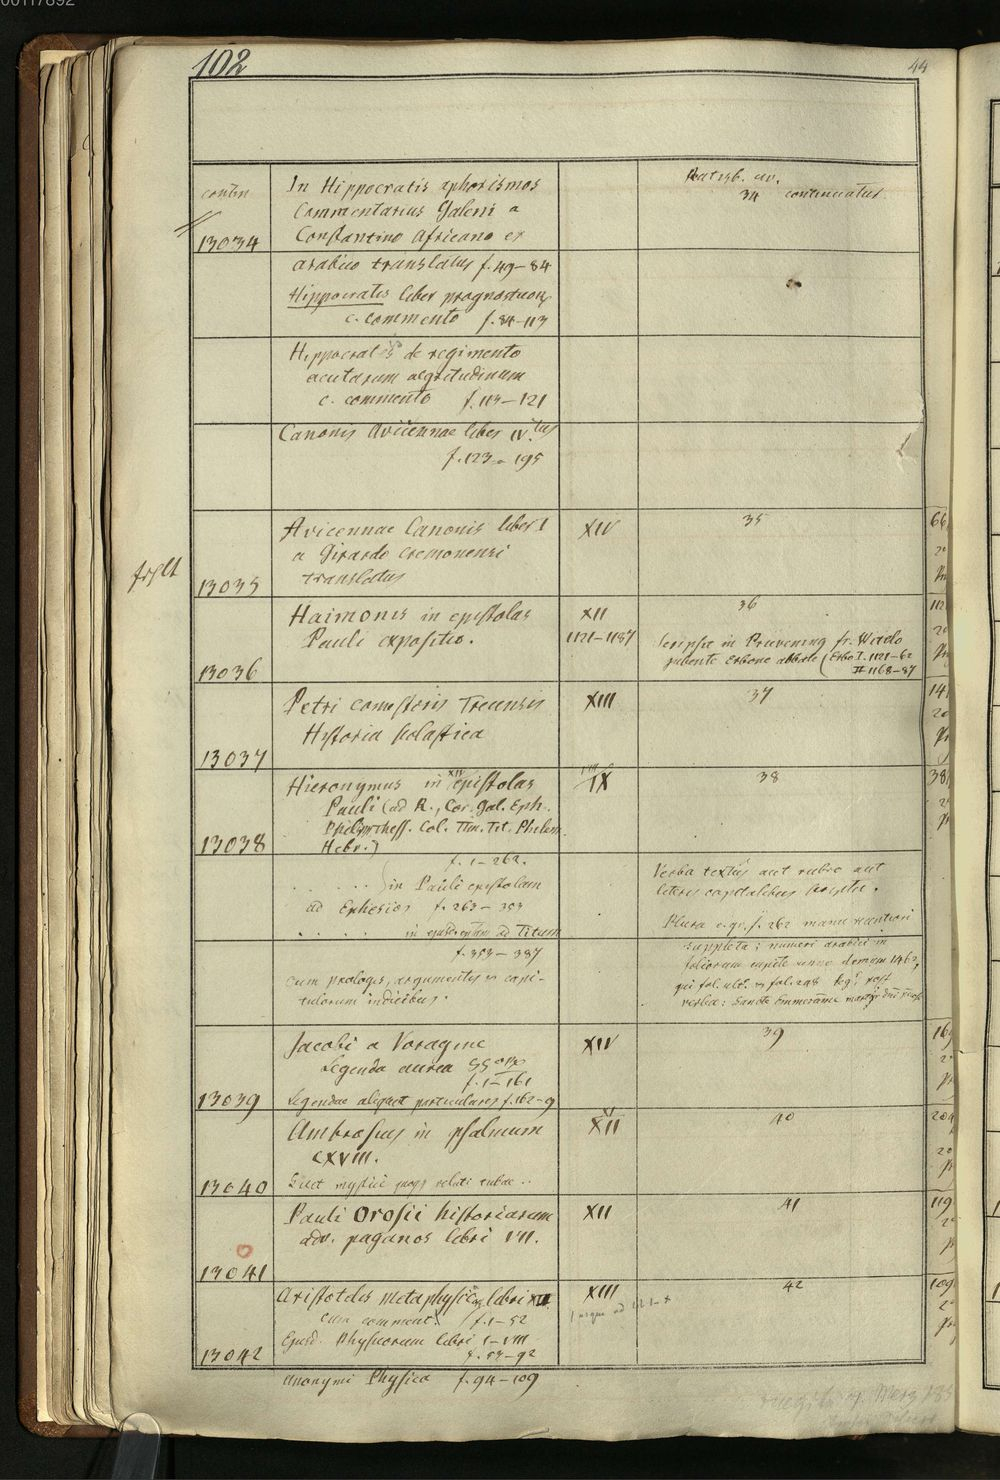 00117892
102
44
contin
13034
In Hippocratis aphorismos
Commentarius Galeni a
Constantino Africano ex
arabico translatus f. 49–84
Hippocratis liber prognosticor.
c. commento f. 84–113
Ratisb. civ.
34 continuatus
Hippocrates de regimento
acutarum aegritudinum
c. commento f. 113–121
Canonis Avicennae liber IV.tus
f. 123–195
13035
Avicennae Canonis liber I
a Girardo Cremonensi
translatus
XIV
35
66
13036
Haimonis in epistolas
Pauli expositio.
XII
1121–1187
36
Scripsit in Prüvening fr. Wado
jubente Erbone abbate (Erbo I. 1121–62
II 1168–87
112
13037
Petri comestoris Trecensis
Historia scolastica
XIII
37
14
13038
Hieronymus in XIV epistolas
Pauli (ad R., Cor. Gal. Eph.
Philipp. Thess. Col. Tim. Tit. Philem.
Hebr.)
VIII
IX
38
38
f. 1–262.
. . . . . . in Pauli epistolam
ad Ephesios f. 263–353
. . . . . in ejusd. eptm ad Titum
f. 353–387
cum prologis, argumentis et capi-
tulorum indicibus.
Verba textus aut rubro aut
literis capitalibus scripta.
Plura e. gr. f. 262 manu recentiori
suppleta; numeri arabici in
foliorum capite anno demum 1462,
verba: Sancte Emmerame martyr
13039
Jacobi a Voragine
Legenda aurea SSorum
f. 1–161
Legendae aliquot particulares f. 162–9
XIV
39
169
13040
Ambrosius in psalmum
CXVIII.
XI
XII
40
204
13041
Pauli Orosii historiarum
adv. paganos libri VII.
XII
41
119
13042
Aristotelis metaphysicor. libri XII
cum comment. f. 1–52
Ejusd. Physicorum libri I–VIII
f. 53–92
Anonymi Physica f. 94–109
XIII
42
109